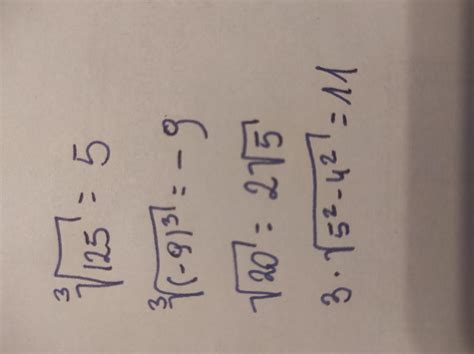 ∛125 = 5
∛(-9)³ = -9
√20 = 2√5
3·√5²-4² = 11